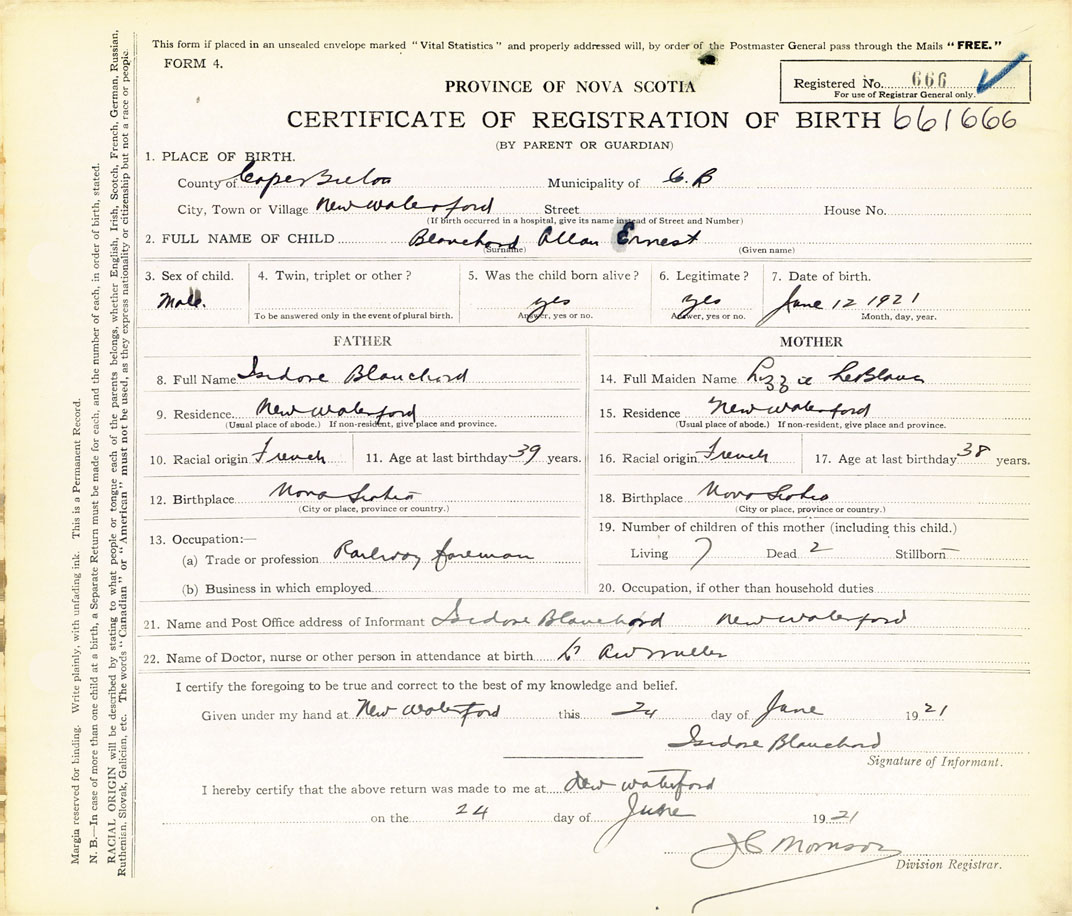 This form if placed in an unsealed envelope marked "Vital Statistics" and properly addressed will, by order of the Postmaster General pass through the Mails "FREE."
FORM 4.
Registered No. 666
For use of Registrar General only.
PROVINCE OF NOVA SCOTIA
CERTIFICATE OF REGISTRATION OF BIRTH 661666
(BY PARENT OR GUARDIAN)
1. PLACE OF BIRTH.
County of Cape Breton Municipality of C. B
City, Town or Village New Waterford Street House No.
(If birth occurred in a hospital, give its name instead of Street and Number)
2. FULL NAME OF CHILD Blanchard Allan Ernest
(Surname) (Given name)
3. Sex of child. 4. Twin, triplet or other? 5. Was the child born alive? 6. Legitimate? 7. Date of birth.
Male. yes yes June 12 1921
To be answered only in the event of plural birth. Answer, yes or no. Answer, yes or no. Month, day, year.
FATHER
8. Full Name Isidore Blanchard
9. Residence. New Waterford
(Usual place of abode.) If non-resident, give place and province.
10. Racial origin French 11. Age at last birthday 39 years.
12. Birthplace Nova Scotia
(City or place, province or country.)
13. Occupation:—
(a) Trade or profession Railway foreman
(b) Business in which employed
MOTHER
14. Full Maiden Name Lizzie LeBlanc
15. Residence New Waterford
(Usual place of abode.) If non-resident, give place and province.
16. Racial origin French 17. Age at last birthday 38 years.
18. Birthplace Nova Scotia
(City or place, province or country.)
19. Number of children of this mother (including this child.)
Living 7 Dead 2 Stillborn —
20. Occupation, if other than household duties
21. Name and Post Office address of Informant Isidore Blanchard New Waterford
22. Name of Doctor, nurse or other person in attendance at birth
I certify the foregoing to be true and correct to the best of my knowledge and belief.
Given under my hand at New Waterford this 24 day of June 1921
Isidore Blanchard
Signature of Informant.
I hereby certify that the above return was made to me at New Waterford
on the 24 day of June 1921
J C Morrison
Division Registrar.
Margin reserved for binding. Write plainly, with unfading ink. This is a Permanent Record.
N. B.—In case of more than one child at a birth, a Separate Return must be made for each, and the number of each, in order of birth, stated.
RACIAL ORIGIN will be described by stating to what people or tongue each of the parents belongs, whether English, Irish, Scotch, French, German, Russian,
Ruthenian, Slovak, Galician, etc. The words "Canadian" or "American" must not be used, as they express nationality or citizenship but not a race or people.